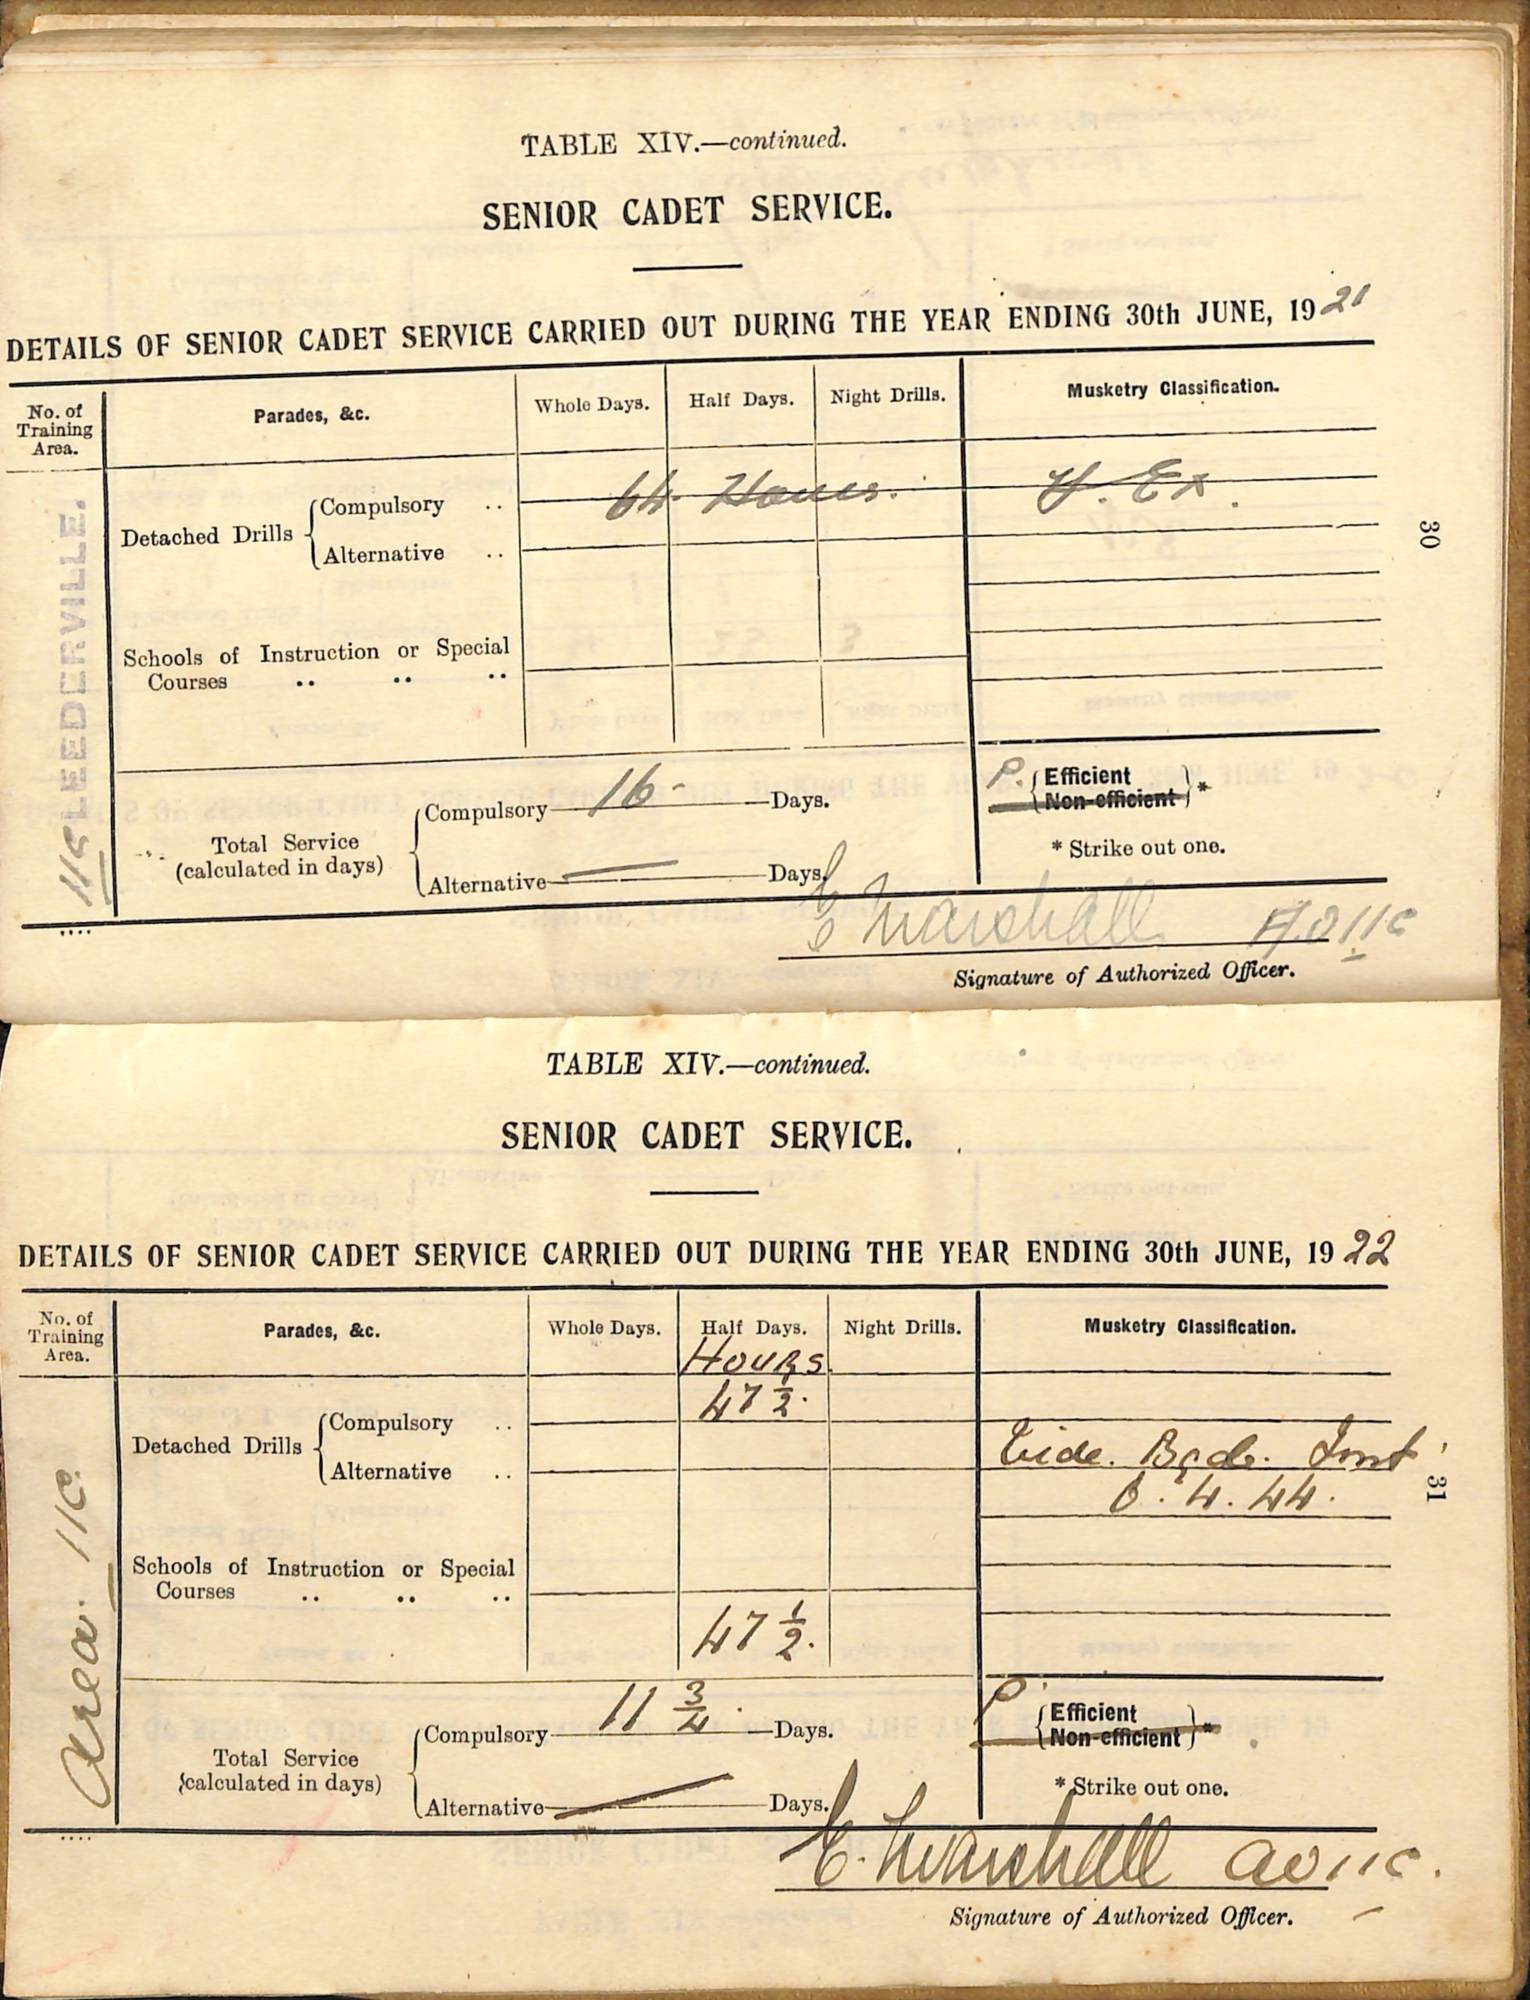 TABLE XIV.—continued.
SENIOR CADET SERVICE.
DETAILS OF SENIOR CADET SERVICE CARRIED OUT DURING THE YEAR ENDING 30th JUNE, 1921
No. of Training Area.
Parades, &c.
Whole Days.
Half Days.
Night Drills.
Musketry Classification.
11C LEEDERVILLE.
Detached Drills
Compulsory ..
64 Hours.
Alternative ..
Schools of Instruction or Special
Courses .. .. ..
Total Service
(calculated in days)
Compulsory 16 Days.
Alternative — Days.
P. Efficient
Non-efficient *
* Strike out one.
E Marshall A.O 11C
Signature of Authorized Officer.
30
TABLE XIV.—continued.
SENIOR CADET SERVICE.
DETAILS OF SENIOR CADET SERVICE CARRIED OUT DURING THE YEAR ENDING 30th JUNE, 1922
No. of Training Area.
Parades, &c.
Whole Days.
Half Days.
Night Drills.
Musketry Classification.
Hours.
Area 11C.
Detached Drills
Compulsory ..
47 1/2.
Alternative ..
Vide. Bgde. Inst
6. 4. 44.
Schools of Instruction or Special
Courses .. .. ..
47 1/2.
Total Service
(calculated in days)
Compulsory 11 3/4. Days.
Alternative — Days.
P. Efficient
Non-efficient *
* Strike out one.
E. Marshall AO 11C.
Signature of Authorized Officer.
31